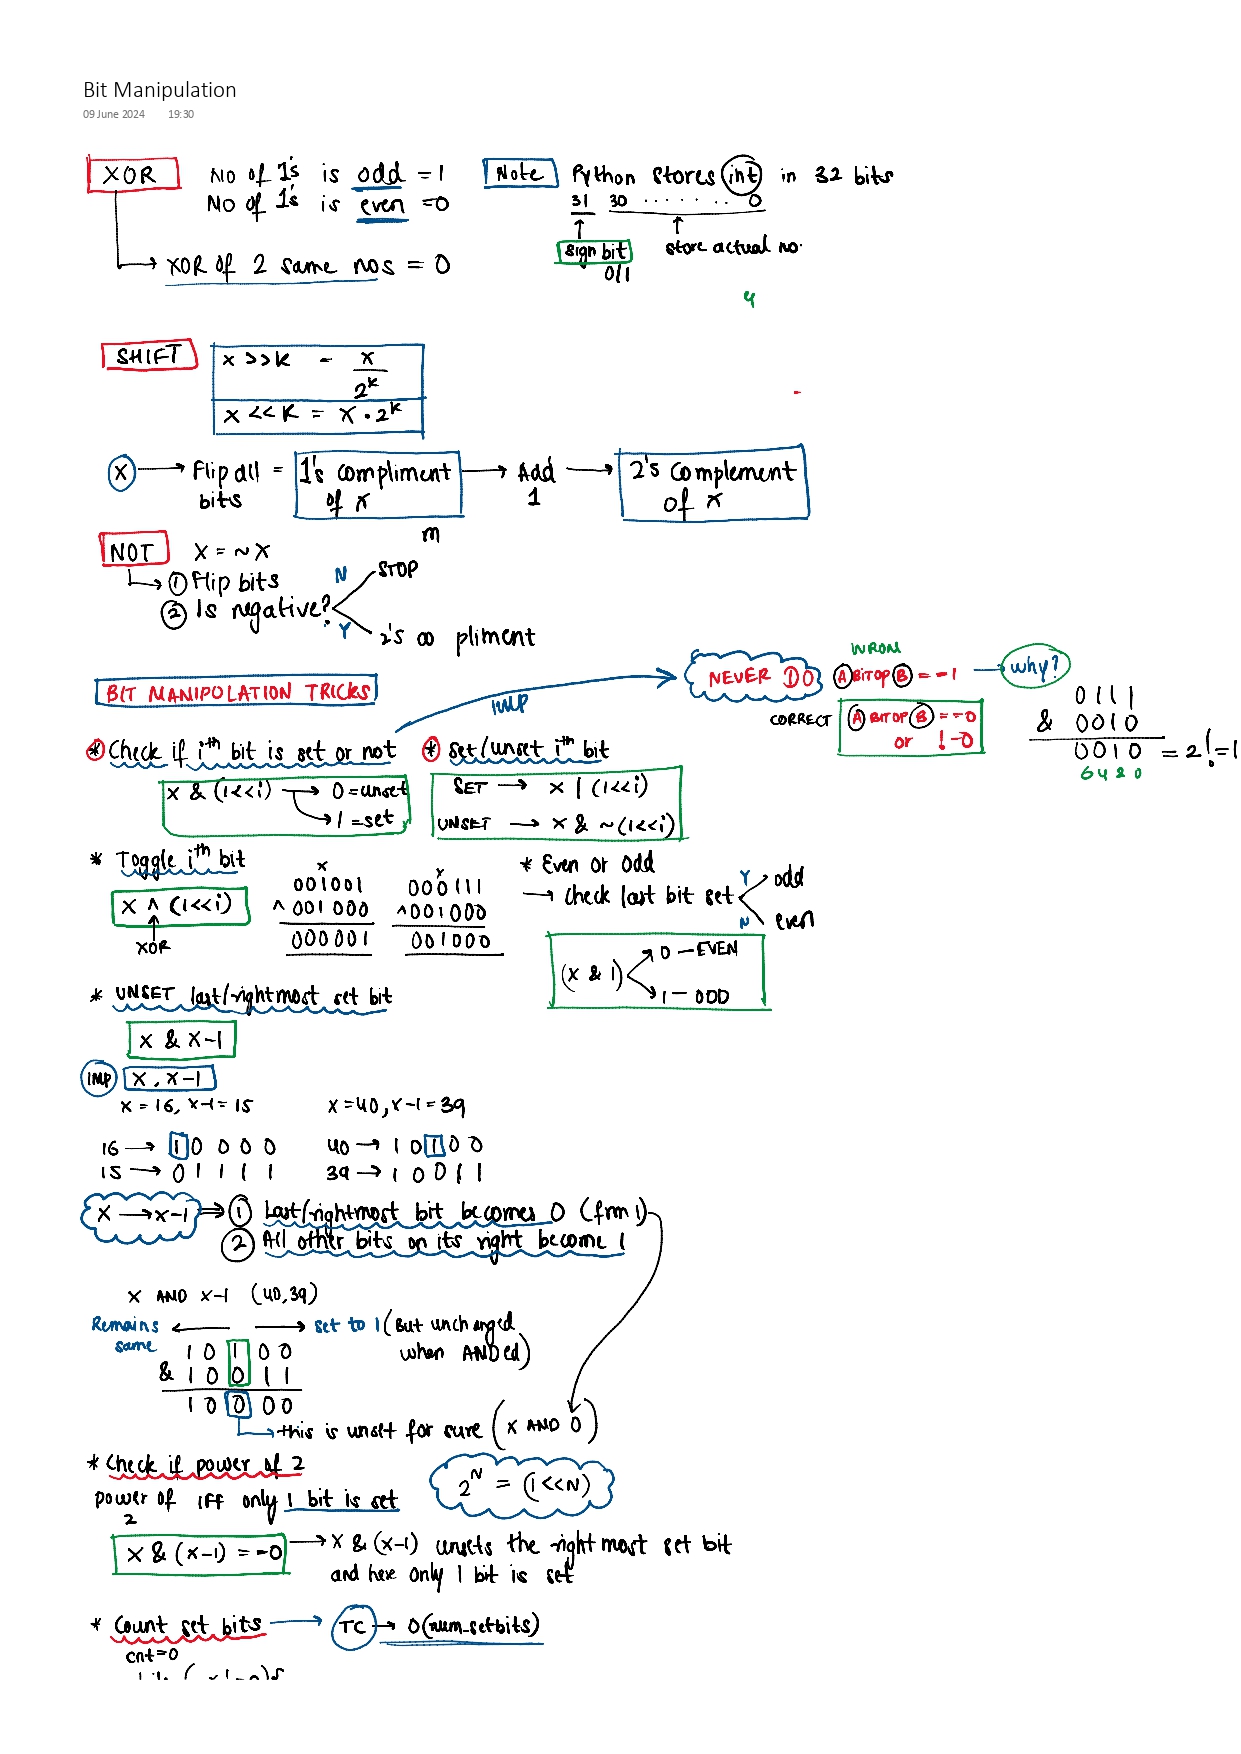 Bit Manipulation
09 June 2024 19:30
XOR
No of 1's is odd = 1
No of 1's is even =0
XOR of 2 same nos = 0
Note
Python stores int in 32 bits
31 30 ........ 0
sign bit
0/1
store actual no.
4
SHIFT
x >>k - x
2^k
x <<k = x . 2^k
X → Flip all bits = 1's compliment of x → Add 1 → 2's complement of x
m
NOT X = ~X
① Flip bits
② Is negative?
N STOP
Y 2's co pliment
BIT MANIPOLATION TRICKS
IMP
NEVER DO
WRON
A BITOP B = - 1
why?
CORRECT
A BITOP B = - 0
or ! - 0
0 1 1 1
& 0 0 1 0
0 0 1 0 = 2 ! = 1
6 4 2 0
* Check if i^th bit is set or not
x & (1<<i) → 0 = unset
→ 1 = set
* Set/unset i^th bit
SET → x | (1<<i)
UNSET → x & ~(1<<i)
* Toggle i^th bit
X ^ (1<<i)
XOR
x
001001
^ 001 000
000 001
x
000111
^001000
001000
* Even or Odd
→ Check last bit set
Y odd
N even
(x & 1)
0 - EVEN
1 - ODD
* UNSET last/rightmost set bit
X & X-1
IMP X, X-1
X = 16, X-1 = 15
X = 40, X-1 = 39
16 → 1 0 0 0 0
15 → 0 1 1 1 1
40 → 1 0 1 0 0
39 → 1 0 0 1 1
X → X-1 ⇒ ① Last/rightmost bit becomes 0 (frm 1)
② All other bits on its right become 1
X AND X-1 (40,39)
Remains same ← → set to 1 (But unchanged when ANDed)
1 0 1 0 0
& 1 0 0 1 1
1 0 0 0 0
→ this is unset for sure (X AND 0)
* Check if power of 2
power of 2 IFF only 1 bit is set
2^N = (1<<N)
X & (X-1) = - 0 → X & (X-1) unsets the rightmost set bit
and here only 1 bit is set
* Count set bits → TC → O(num_setbits)
cnt=0